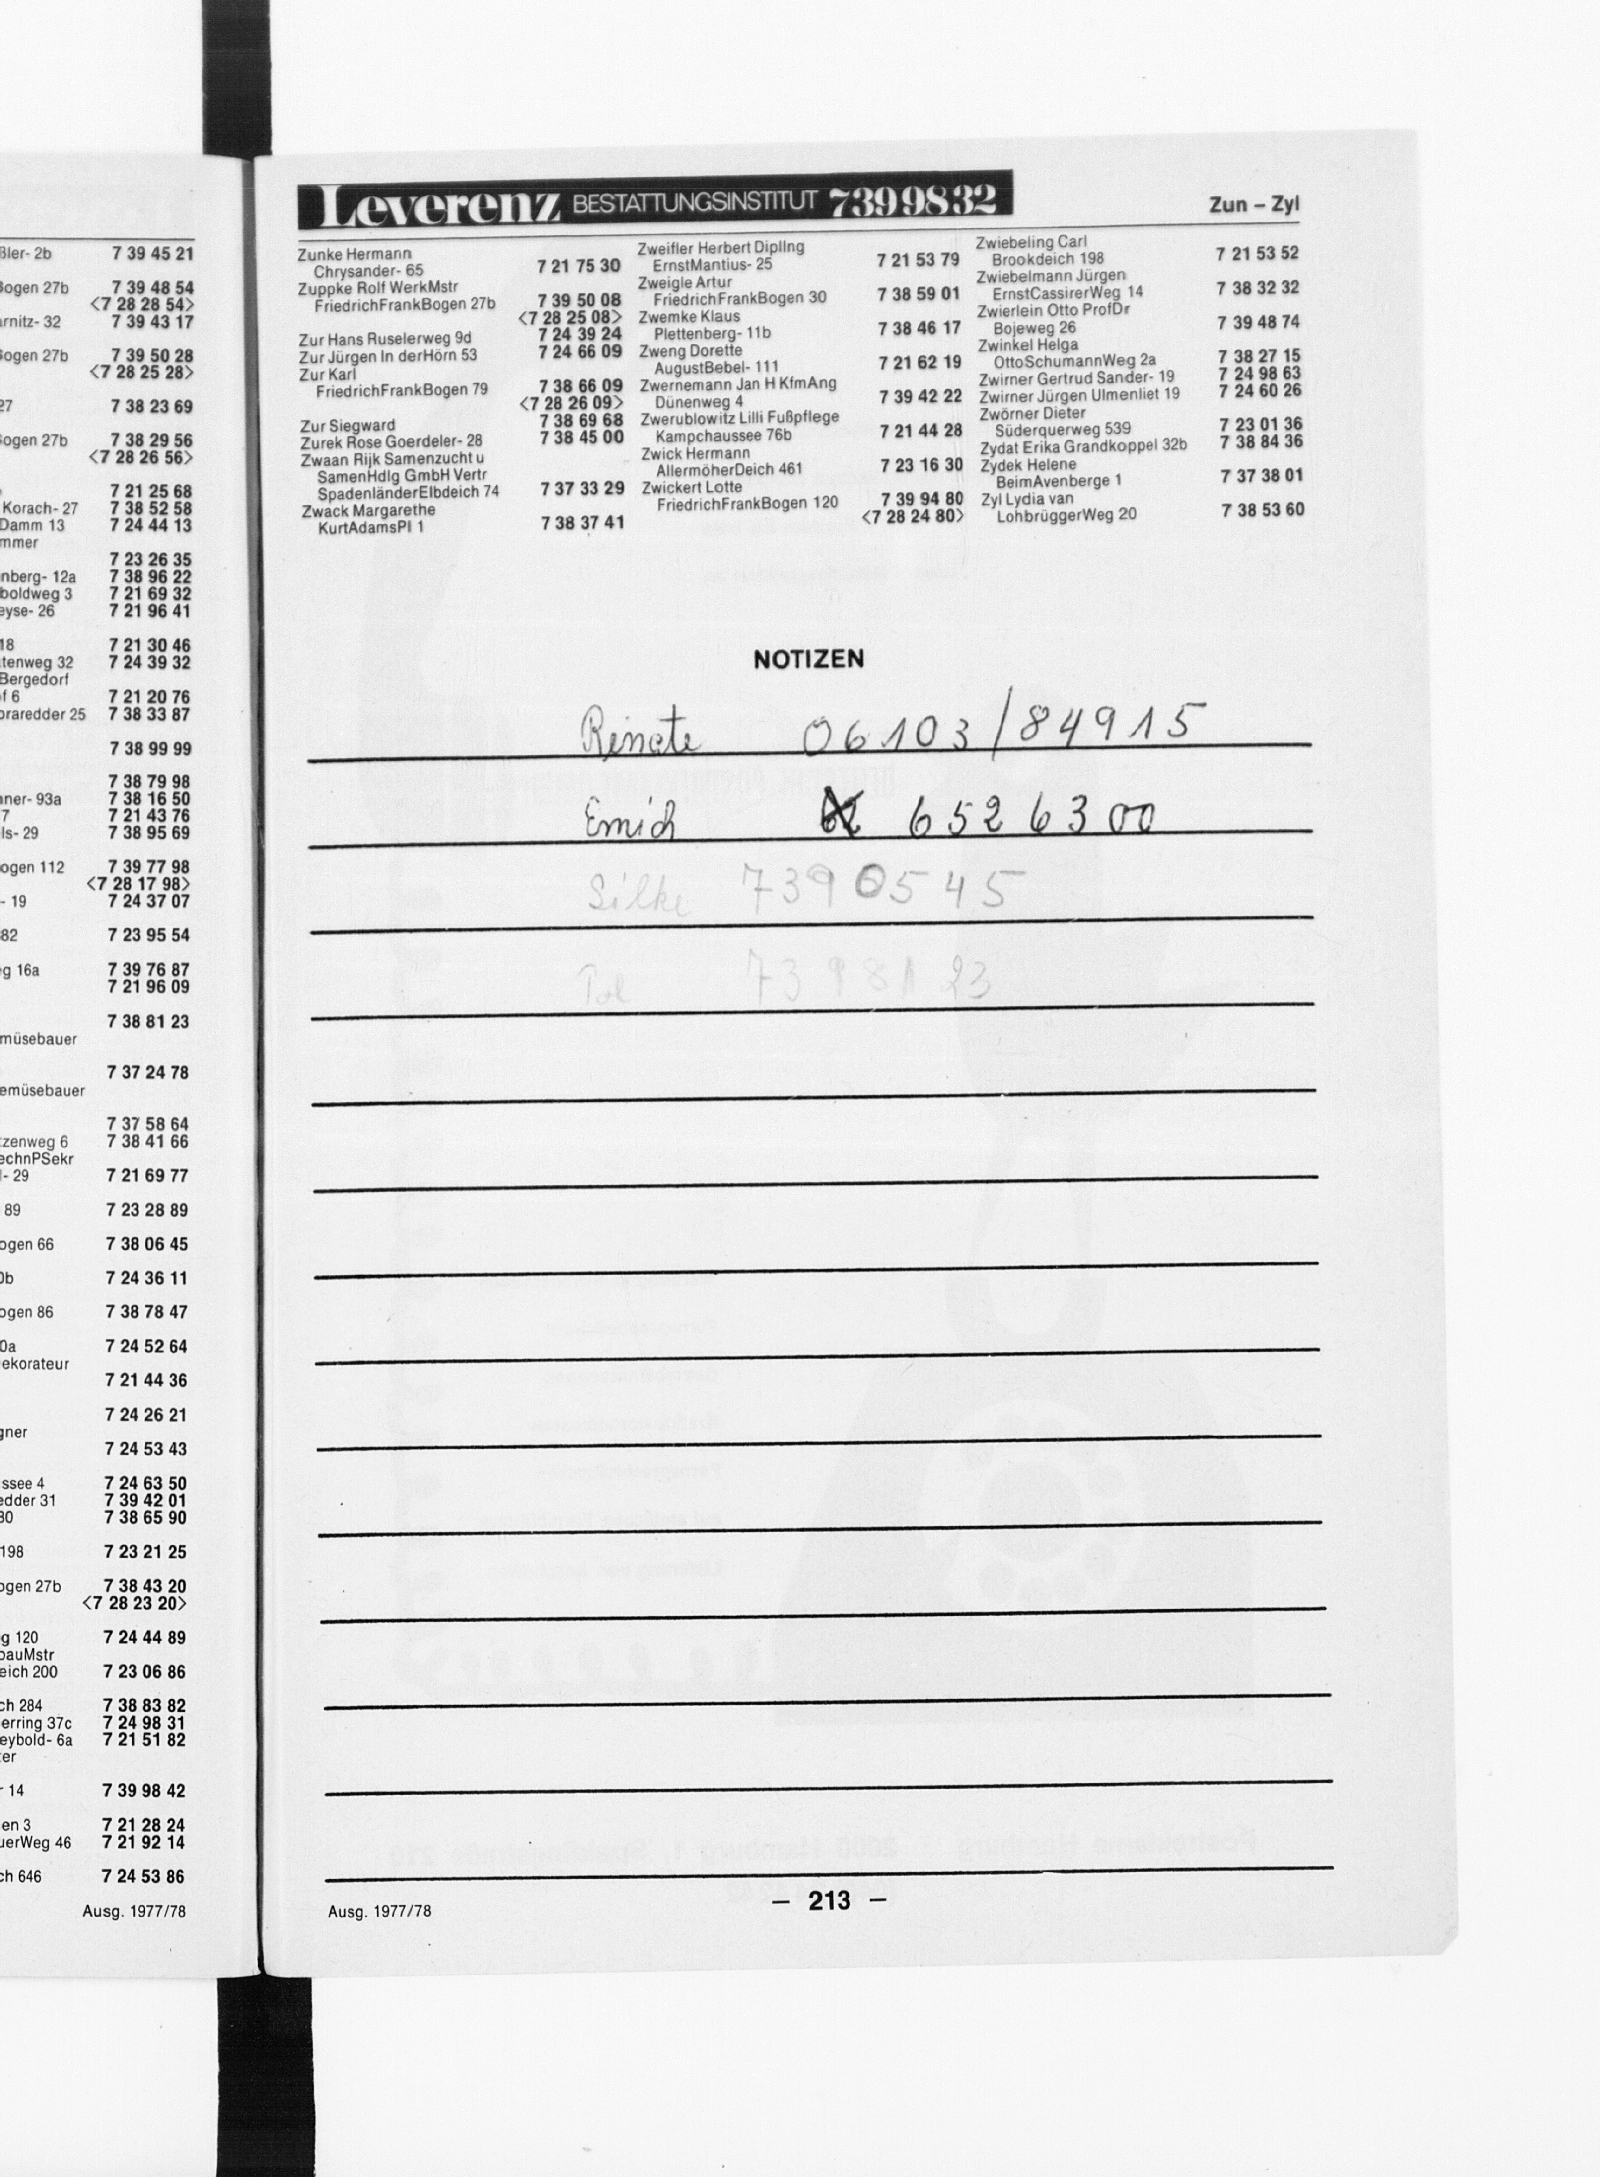 ßler- 2b 7 39 45 21
Bogen 27b 7 39 48 54
<7 28 28 54>
arnitz- 32 7 39 43 17
Bogen 27b 7 39 50 28
<7 28 25 28>
27 7 38 23 69
Bogen 27b 7 38 29 56
<7 28 26 56>
7 21 25 68
Korach- 27 7 38 52 58
Damm 13 7 24 44 13
mmer
7 23 26 35
nberg- 12a 7 38 96 22
boldweg 3 7 21 69 32
eyse- 26 7 21 96 41
18 7 21 30 46
tenweg 32 7 24 39 32
Bergedorf
of 6 7 21 20 76
oraredder 25 7 38 33 87
7 38 99 99
7 38 79 98
nner- 93a 7 38 16 50
7 7 21 43 76
ls- 29 7 38 95 69
ogen 112 7 39 77 98
<7 28 17 98>
- 19 7 24 37 07
82 7 23 95 54
g 16a 7 39 76 87
7 21 96 09
7 38 81 23
müsebauer
7 37 24 78
emüsebauer
7 37 58 64
tzenweg 6 7 38 41 66
echnPSekr
l- 29 7 21 69 77
89 7 23 28 89
ogen 66 7 38 06 45
0b 7 24 36 11
ogen 86 7 38 78 47
0a 7 24 52 64
ekorateur
7 21 44 36
7 24 26 21
gner
7 24 53 43
ssee 4 7 24 63 50
edder 31 7 39 42 01
80 7 38 65 90
198 7 23 21 25
ogen 27b 7 38 43 20
<7 28 23 20>
g 120 7 24 44 89
bauMstr
eich 200 7 23 06 86
ch 284 7 38 83 82
erring 37c 7 24 98 31
eybold- 6a 7 21 51 82
ter
r 14 7 39 98 42
en 3 7 21 28 24
uerWeg 46 7 21 92 14
ch 646 7 24 53 86
Ausg. 1977/78
Leverenz BESTATTUNGSINSTITUT 7399832
Zun – Zyl
Zunke Hermann
Chrysander- 65 7 21 75 30
Zuppke Rolf WerkMstr
FriedrichFrankBogen 27b 7 39 50 08
<7 28 25 08>
Zur Hans Ruselerweg 9d 7 24 39 24
Zur Jürgen In derHörn 53 7 24 66 09
Zur Karl
FriedrichFrankBogen 79 7 38 66 09
<7 28 26 09>
Zur Siegward 7 38 69 68
Zurek Rose Goerdeler- 28 7 38 45 00
Zwaan Rijk Samenzucht u
SamenHdlg GmbH Vertr
SpadenländerElbdeich 74 7 37 33 29
Zwack Margarethe
KurtAdamsPl 1 7 38 37 41
Zweifler Herbert DiplIng
ErnstMantius- 25 7 21 53 79
Zweigle Artur
FriedrichFrankBogen 30 7 38 59 01
Zwemke Klaus
Plettenberg- 11b 7 38 46 17
Zweng Dorette
AugustBebel- 111 7 21 62 19
Zwernemann Jan H KfmAng
Dünenweg 4 7 39 42 22
Zwerublowitz Lilli Fußpflege
Kampchaussee 76b 7 21 44 28
Zwick Hermann
AllermöherDeich 461 7 23 16 30
Zwickert Lotte
FriedrichFrankBogen 120 7 39 94 80
<7 28 24 80>
Zwiebeling Carl
Brookdeich 198 7 21 53 52
Zwiebelmann Jürgen
ErnstCassirerWeg 14 7 38 32 32
Zwierlein Otto ProfDr
Bojeweg 26 7 39 48 74
Zwinkel Helga
OttoSchumannWeg 2a 7 38 27 15
Zwirner Gertrud Sander- 19 7 24 98 63
Zwirner Jürgen Ulmenliet 19 7 24 60 26
Zwörner Dieter
Süderquerweg 539 7 23 01 36
Zydat Erika Grandkoppel 32b 7 38 84 36
Zydek Helene
BeimAvenberge 1 7 37 38 01
Zyl Lydia van
LohbrüggerWeg 20 7 38 53 60
NOTIZEN
Renate 06103/84915
Emich 6526300
Silke 7390545
7398123
– 213 –
Ausg. 1977/78